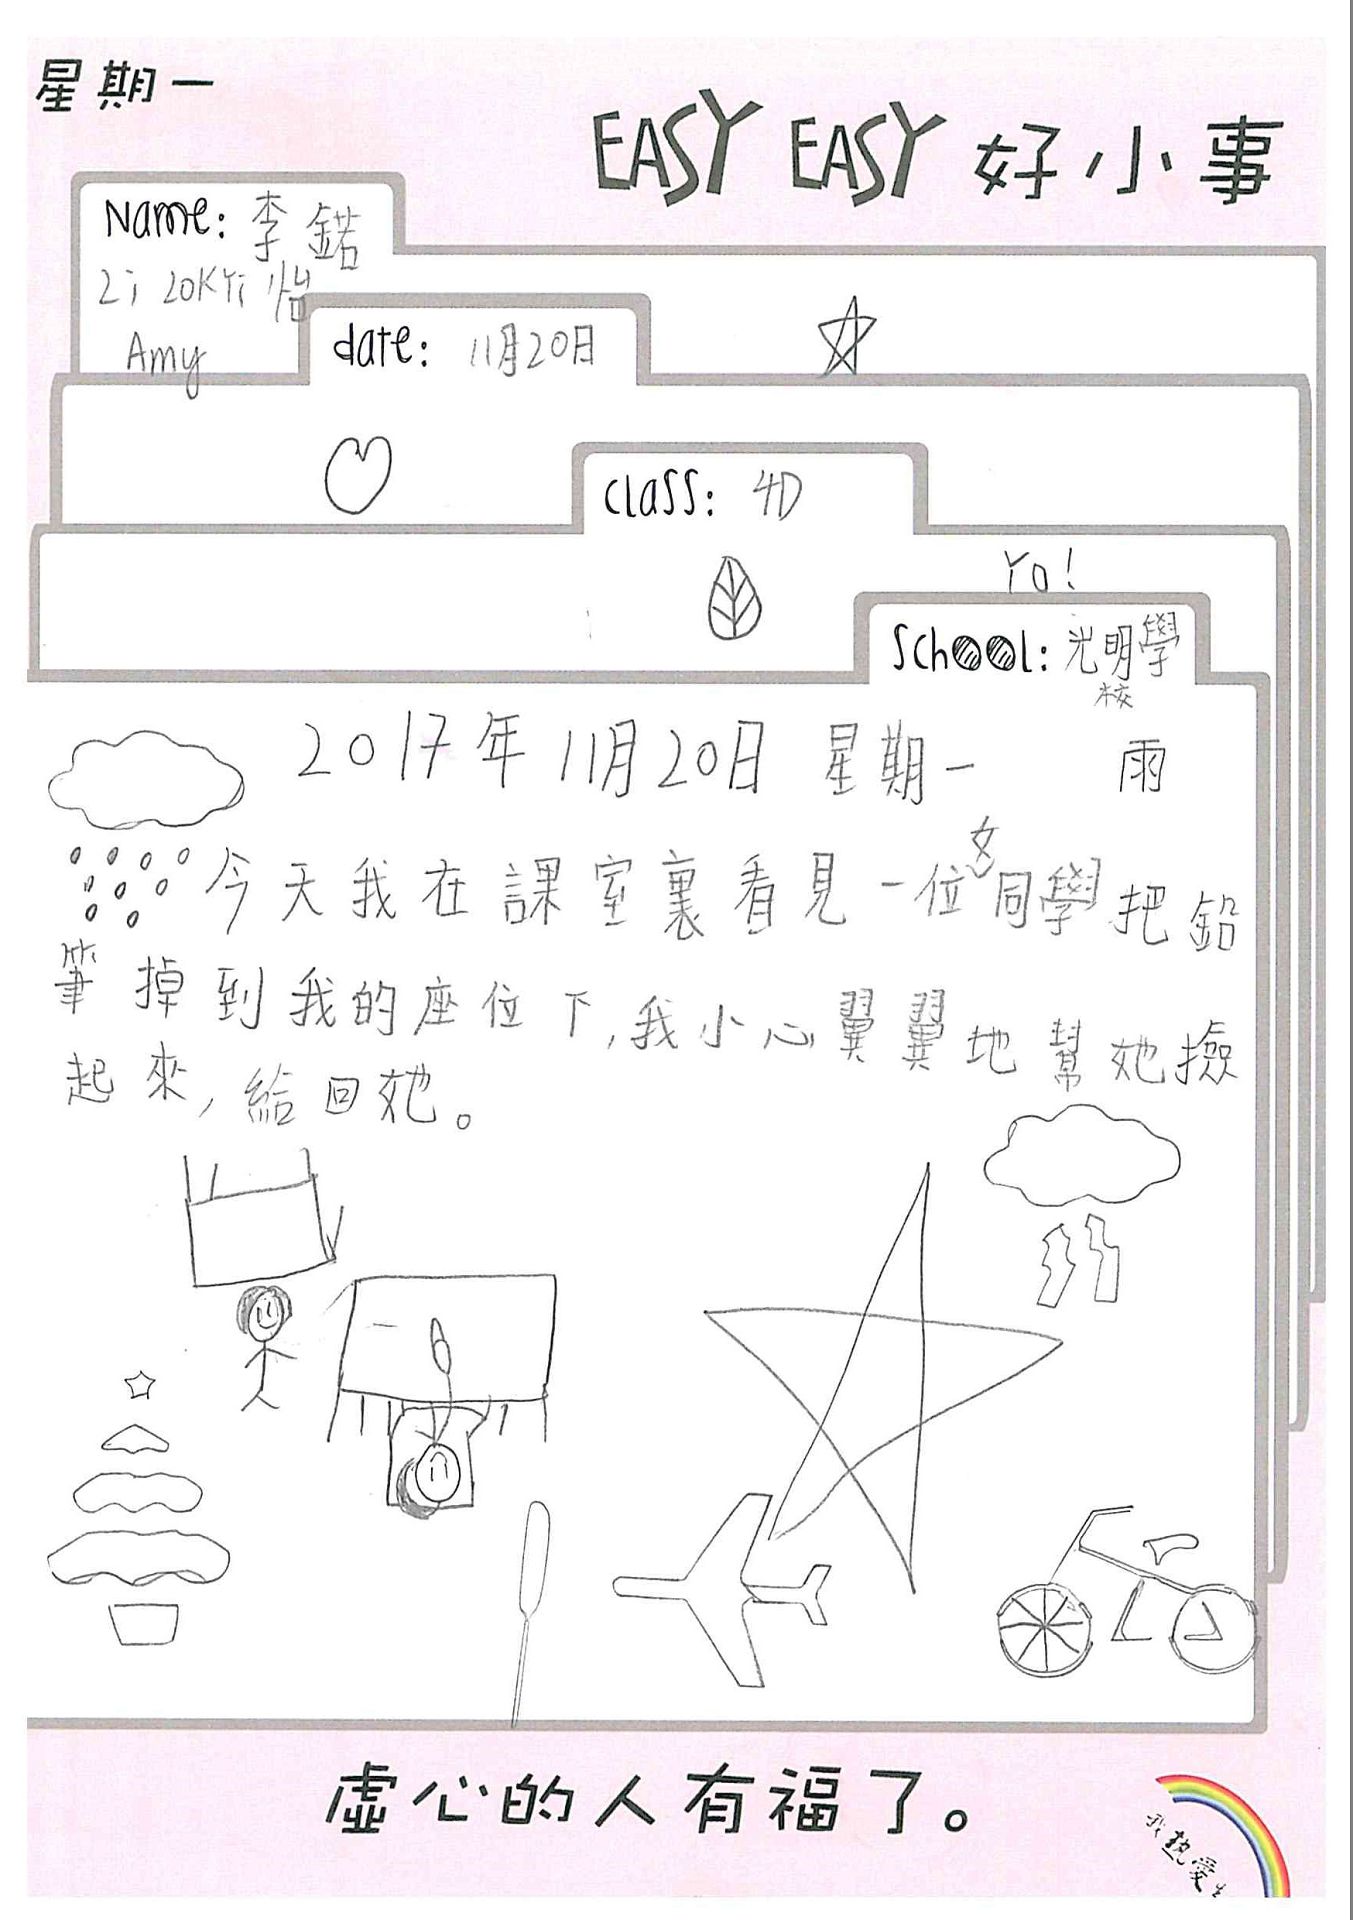 星期一
EASY EASY 好小事
Name: 李鍩
Li LOK Yi 怡
Amy
date: 11月20日
class: 4D
Yo!
School: 光明學
校
2017年11月20日 星期一 雨
今天我在課室裏看見一位女同學把鉛
筆掉到我的座位下,我小心翼翼地幫她撿
起來,給回她。
虛心的人有福了。
我熱愛生